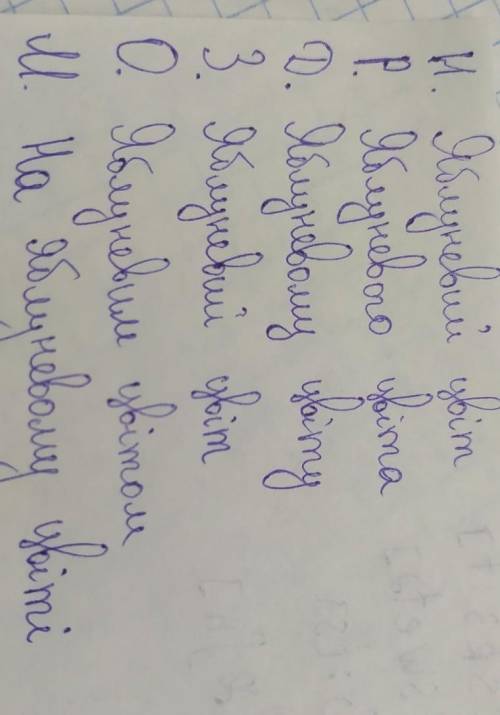 Н. Яблуневий цвіт
Р. Яблуневого цвіта
Д. Яблуневому цвіту
З. Яблуневий цвіт
О. Яблуневим цвітом
М. На яблуневому цвіті